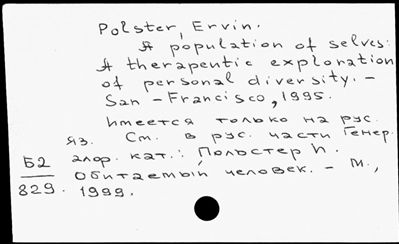 Polster, Ervin.
A population of selves:
A therapeutic exploration
of personal diversity. –
San – Francisco, 1995.
Имеется только на рус.
яз. См. в рус. части Генер.
алфр. кат.: Польстер И.
Обитаемый человек. – М.,
1999.
Б2
829